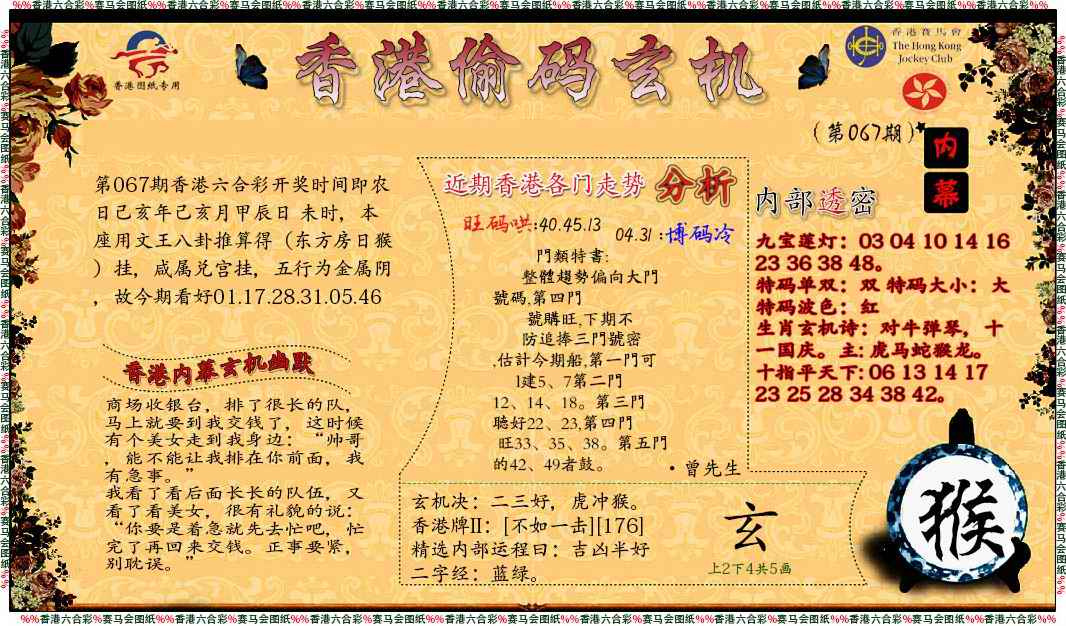 %%香港六合彩%赛马会图纸%%香港六合彩%赛马会图纸%%香港六合彩%赛马会图纸%%香港六合彩%赛马会图纸%%香港六合彩%赛马会图纸%%香港六合彩%赛马会图纸%%香港六合彩%赛马会图纸%%香港六合彩%%
香港图纸专用
香港偷码玄机
香港賽馬會
The Hong Kong
Jockey Club
(第067期)
内
幕
第067期香港六合彩开奖时间即农
日己亥年己亥月甲辰日 未时，本
座用文王八卦推算得（东方房日猴
）挂，咸属兑宫挂，五行为金属阴
，故今期看好01.17.28.31.05.46
香港内幕玄机幽默
商场收银台，排了很长的队，
马上就要到我交钱了，这时候
有个美女走到我身边：“帅哥
，能不能让我排在你前面，我
有急事。”
我看了看后面长长的队伍，又
看了看美女，很有礼貌的说：
“你要是着急就先去忙吧，忙
完了再回来交钱。正事要紧，
别耽误。”
近期香港各门走势 分析
旺码哄:40.45.13
04.31 :博码冷
門類特書:
整體趨勢偏向大門
號碼,第四門
號購旺,下期不
防追捧三門號密
,估計今期船,第一門可
1建5、7第二門
12、14、18。第三門
聽好22、23,第四門
旺33、35、38。第五門
的42、49者鼓。
·曾先生
玄机决：二三好，虎冲猴。
香港牌II：[不如一击][176]
精选内部运程曰：吉凶半好
二字经：蓝绿。
玄
上2下4共5画
内部透密
九宝莲灯：03 04 10 14 16
23 36 38 48。
特码单双：双 特码大小：大
特码波色：红
生肖玄机诗：对牛弹琴，十
一国庆。主: 虎马蛇猴龙。
十指平天下: 06 13 14 17
23 25 28 34 38 42。
猴
%%香港六合彩%赛马会图纸%%香港六合彩%赛马会图纸%%香港六合彩%赛马会图纸%%香港六合彩%赛马会图纸%%香港六合彩%赛马会图纸%%香港六合彩%赛马会图纸%%香港六合彩%赛马会图纸%%